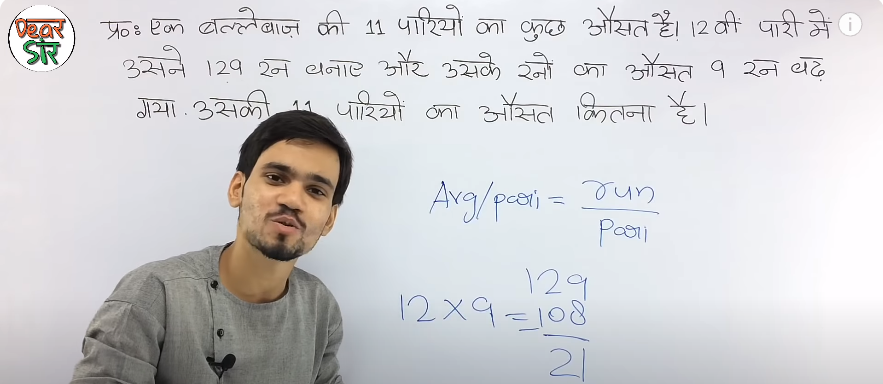 Dear
Sir
प्र०: एक बल्लेबाज़ की 11 पारियो का कुछ औसत है। 12 वी पारी मे
उसने 129 रन बनाए और उसके रनो का औसत 9 रन बढ़
गया. उसकी 11 पारियों का औसत कितना है।
Avg/pari = run
pari
129
12 × 9 = -108
21